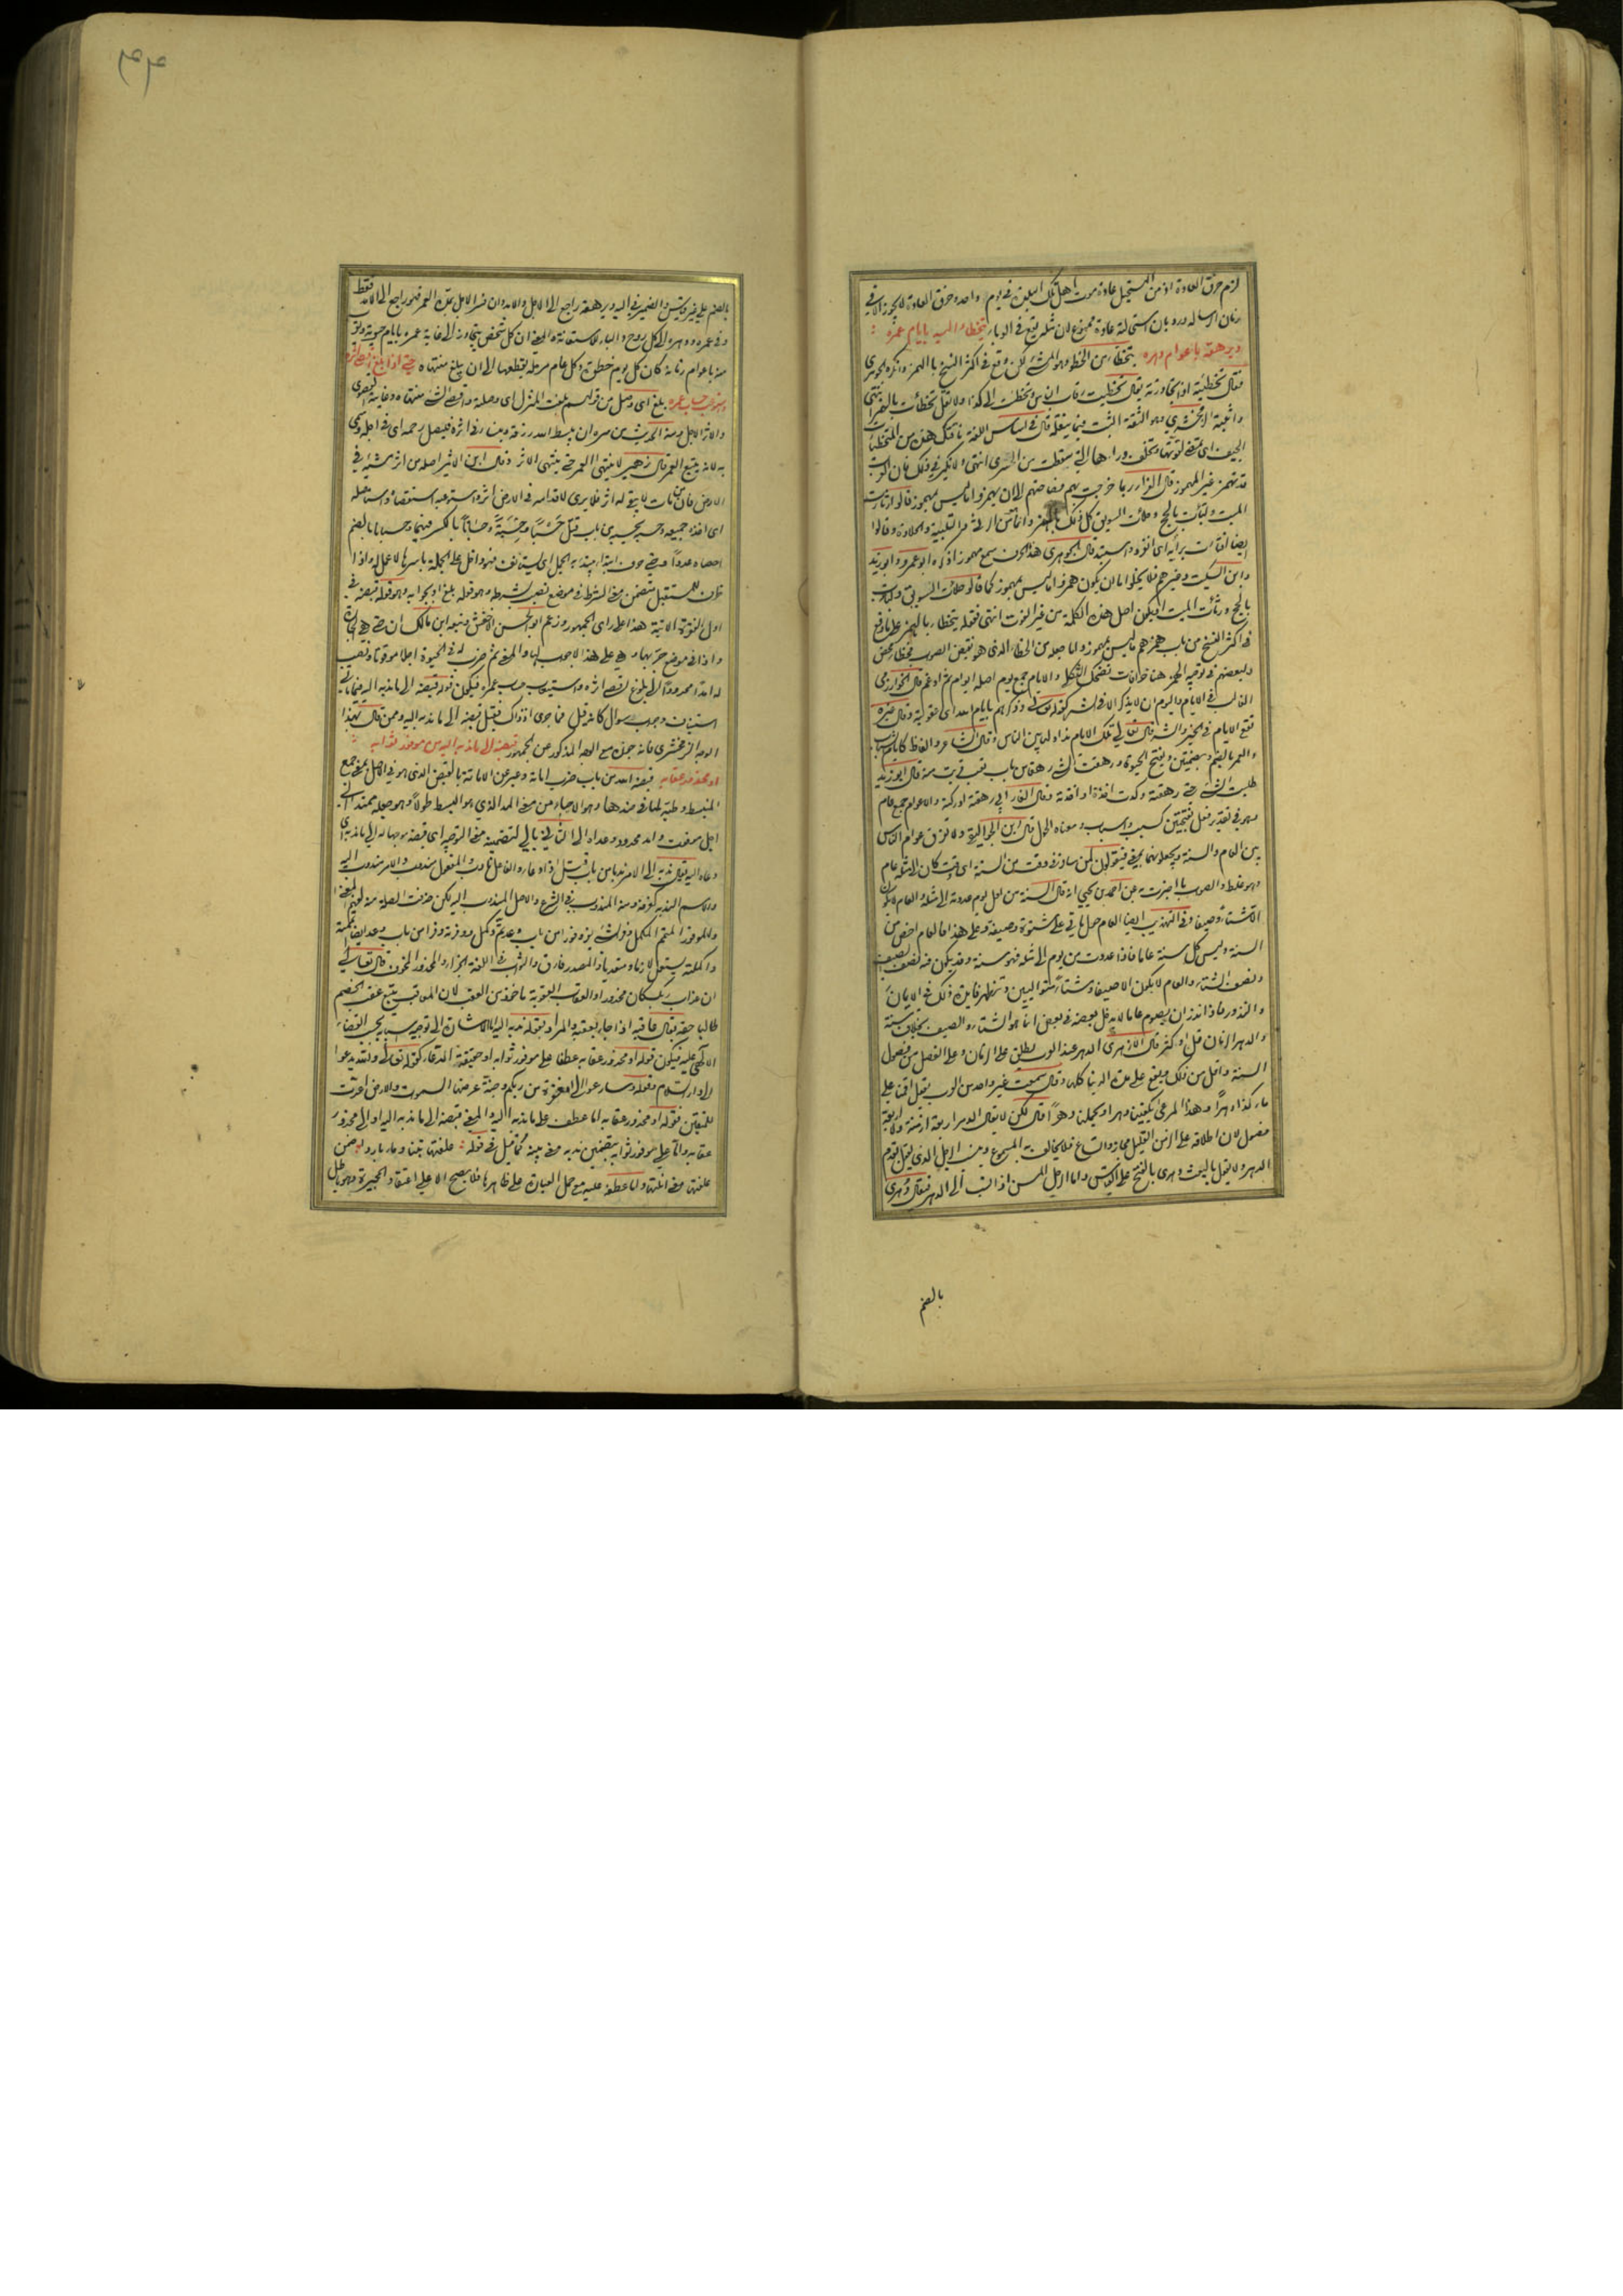 لزم خرق العادة اذ من المستحيل عادة موت اهل تلك البلدة في يوم واحد وخرق العادة لا يجوز الا في
زمان الرسالة ورد بان استحالته عادة ممنوع لان مثله يقع في الوباء يتخطا اليه بايام عمره
ويرهقه باعوام دهره يتخطا من الخطو وهو المشي لكن وقع في اكثر النسخ بالهمز وانكره الجوهري
فقال تخطيته اذا تجاوزته يقال تخطيت رقاب الناس وتخطيت الى كذا ولا تقل تخطأت بالهمز انتهى
واثبته الزمخشري وهو الثقة الثبت فيما ينقله قال في اساس اللغة ناقتك هذه من المتخطيات
الجيف اي تمضي لقوتها وتخلف وراءها التي سقطت من الحسرى انتهى ولا نكير في ذلك فان العرب
قد تهمز غير المهموز قال الفراء ربما خرجت بهم فصاحتهم الى ان يهمزوا ما ليس بمهموز قالوا رثأت
الميت ولبأت بالحج وحلأت السويق كل ذلك بالهمز وانما هي من الرثي والتلبية والحلاوة وقالوا
ايضا افتأت برأيه اي انفرد واستبد قال الجوهري هذا الحرف سمع مهموزا ذكره ابو عمرو وابو زيد
وابن السكيت وغيرهم فلا يخلو اما ان يكون همزوا ما ليس بمهموز كما قالوا حلأت السويق ولبأت
بالحج ورثأت الميت او يكون اصل هذه الكلمة من غير الفوت انتهى فقوله يتخطأ بالهمز على ما وقع
في اكثر النسخ من باب همزهم ما ليس بمهموز واما جعله من الخطاء الذي هو نقيض الصواب فخطاء محض
ولبعضهم في توجيه الهمز هنا خرافات تضحك الثكلى والايام جمع يوم اصله ايوام ثم ادغم قال الخوارزمي
الغالب في الايام واليوم ان لا يذكر الا في الشر كقوله تعالى وذكرهم بايام الله اي عقوباته وقال غيره
تقع الايام في الخير والشر قال تعالى وتلك الايام نداولها بين الناس وقال الشاعر
والعمر بالضم وبضمتين وبفتح الحياة ورهقت الشيء رهقا من باب تعب قربت منه قال ابو زيد
طلبت الشيء حتى رهقته وكدت اخذه او اخذته وقال الفارابي رهقته ادركته والاعوام جمع عام
وهو في تقدير فعل بفتحتين كسبب واسباب ومعناه الحول قال ابن الجواليقي ولا تفرق عوام الناس
بين العام والسنة ويجعلونهما بمعنى فيقولون لمن سافر في وقت من السنة اي وقت كان الى مثله عام
وهو غلط والصواب ما اخبرت به عن احمد بن يحيى انه قال السنة من اول يوم عددته الى مثله والعام لا يكون
الا شتاء وصيفا وفي التهذيب ايضا العام حول ياتي على شتوة وصيفة وعلى هذا فالعام اخص من
السنة وليس كل سنة عاما فاذا عددت من يوم الى مثله فهو سنة وقد يكون فيه نصف الصيف
ونصف الشتاء والعام لا يكون الا صيفا وشتاء متواليين وتظهر فايدة ذلك في الايمان
والنذور فاذا نذر ان يصوم عاما لا يدخل بعضه في بعض انما هو الشتاء والصيف بخلاف سنة
والدهر الزمان قل او كثر قال الازهري الدهر عند العرب يطلق على الزمان وعلى الفصل من فصول
السنة واقل من ذلك ويقع على مدة الدنيا كلها وقال سمعت غير واحد من العرب يقول اقمنا على
ماء كذا دهرا وهذا المرعى يكفينا دهرا ويحملنا دهرا قال لكن لا يقال الدهر اربعة ازمنة ولا اربعة
فصول لان اطلاقه على الزمن القليل مجاز واتساع فلا يخالف به المسموع وينسب الرجل الذي يقول بقدم
الدهر ولا يقول بالبعث دهري بالفتح على القياس واما الرجل المسن اذا نسب الى الدهر فيقال دهري
بالضم
بالضم على غير قياس والضمير في اليه ويرهقه راجع الى الاجل والامد وان فسر الاجل بمدة العمر فهو راجع الى الامد فقط
وفي عمره ودهره الى كل روح والباء للاستعانة والمعنى ان كل شخص يتجاوز الى غاية عمره بايام حيوته ويقرب
منه باعوام زمانه كان كل يوم خطوة وكل عام مرحلة يقطعها الى ان يبلغ منتهاه حتى اذا بلغ اقصى اثره
واستوعب حساب عمره بلغ اي وصل من قولهم بلغت المنزل اي وصلته واقصى الشيء منتهاه وغايته القصوى
والاثر الاجل ومنه الحديث من سره ان يبسط الله رزقه وينسا في اثره فليصل رحمه اي في اجله وسمي
به لانه يتبع العمر قال زهير لا ينتهي العمر حتى ينتهي الاثر وقال ابن الاثير اصله من اثر مشيه في
الارض فان من مات لا يبقى له اثر فلا يرى لاقدامه في الارض اثر واستوعبه استقصاه واستاصله
اي اخذه جميعه وحسبه يحسبه من باب قتل حسبا وحسبة وحسابا بالكسر فيهما وحسبانا بالضم
احصاه عددا وحتى حرف ابتداء يبتدا به الجمل اي يستانف فهو داخل على الجملة باسرها لا عمل له واذا
ظرف للمستقبل متضمن معنى الشرط في موضع نصب بشرطه وهو قوله بلغ او بجوابه وهو قوله قبضه في
اول الفقرة الاتية هذا على راي الجمهور وزعم ابو الحسن الاخفش وتبعه ابن مالك ان حتى هي الجارة
واذا في موضع جر بها وهي على هذا لا جواب لها والمعنى ثم ضرب له في الحيوة اجلا موقوتا ونصب
له امدا محدودا الى بلوغ اقصى اثره واستيعاب حساب عمره فيكون قوله قبضه الى ما ندبه اليه
استيناف وجواب سوال كانه قيل فما جرى اذ ذاك فقيل قبضه الى ما ندبه اليه وممن قال بهذا
الوجه الزمخشري فانه جوزه مع الوجه المذكور عن الجمهور قبضه الى ما ندبه اليه من موفور ثوابه
او محذور عقابه قبضه الله من باب ضرب اماته وعبر عن الاماتة بالقبض الذي هو في الاصل بمعنى جمع
المنبسط وطيه لما في ضدها وهو الاحياء من معنى المد الذي هو البسط طولا وهو جعله ممتدا الى
اجل موقوت وامد محدود وعداه الى الثاني بالى لتضمينه معنى التوجيه اي قبضه موجها له الى ما ندبه اي
دعاه اليه يقال ندبه الى الامر ندبا من باب قتل اذا دعاه والفاعل نادب والمفعول مندوب والامر مندوب اليه
والاسم الندبة كغرفة ومنه المندوب في الشرع والاصل المندوب اليه لكن حذفت الصلة منه لفهم المعنى
والموفور المتمم المكمل وفر الشيء يفر وفورا من باب وعد تم وكمل ووفرته وفرا من باب وعد ايضا اتممته
واكملته يستعمل لازما ومتعديا والمصدر فارق والثواب في اللغة الجزاء والمحذور المخوف قال تعالى
ان عذاب ربك كان محذورا والعقاب العقوبة ماخوذ من العقب لان المعاقب يتبع عقب الخصم
طالبا حقه يقال عاقبه اذا جاء بعقبه والمراد بقوله ندبه اليه الاشارة الى توجيه اسبابه بحسب القضاء
الالهي عليه فيكون قوله او محذور عقابه عطفا على موفور ثوابه او حقيقة الدعاء كقوله تعالى والله يدعو
الى دار السلام وقوله وسارعوا الى مغفرة من ربكم وجنة عرضها السموات والارض اعدت
للمتقين فقوله او محذور عقابه اما عطف على ما ندبه اليه والمعنى قبضه الى ما ندبه اليه او الى محذور
عقابه واما على موفور ثوابه بتضمين ندبه معنى كما قيل في قوله علفتها تبنا وماء باردا انه ضمن
علفتها معنى انلتها واما عطفه عليه مع حمل العبارة على ظاهرها فلا يصح الا على اعتقاد المجبرة وهو باطل